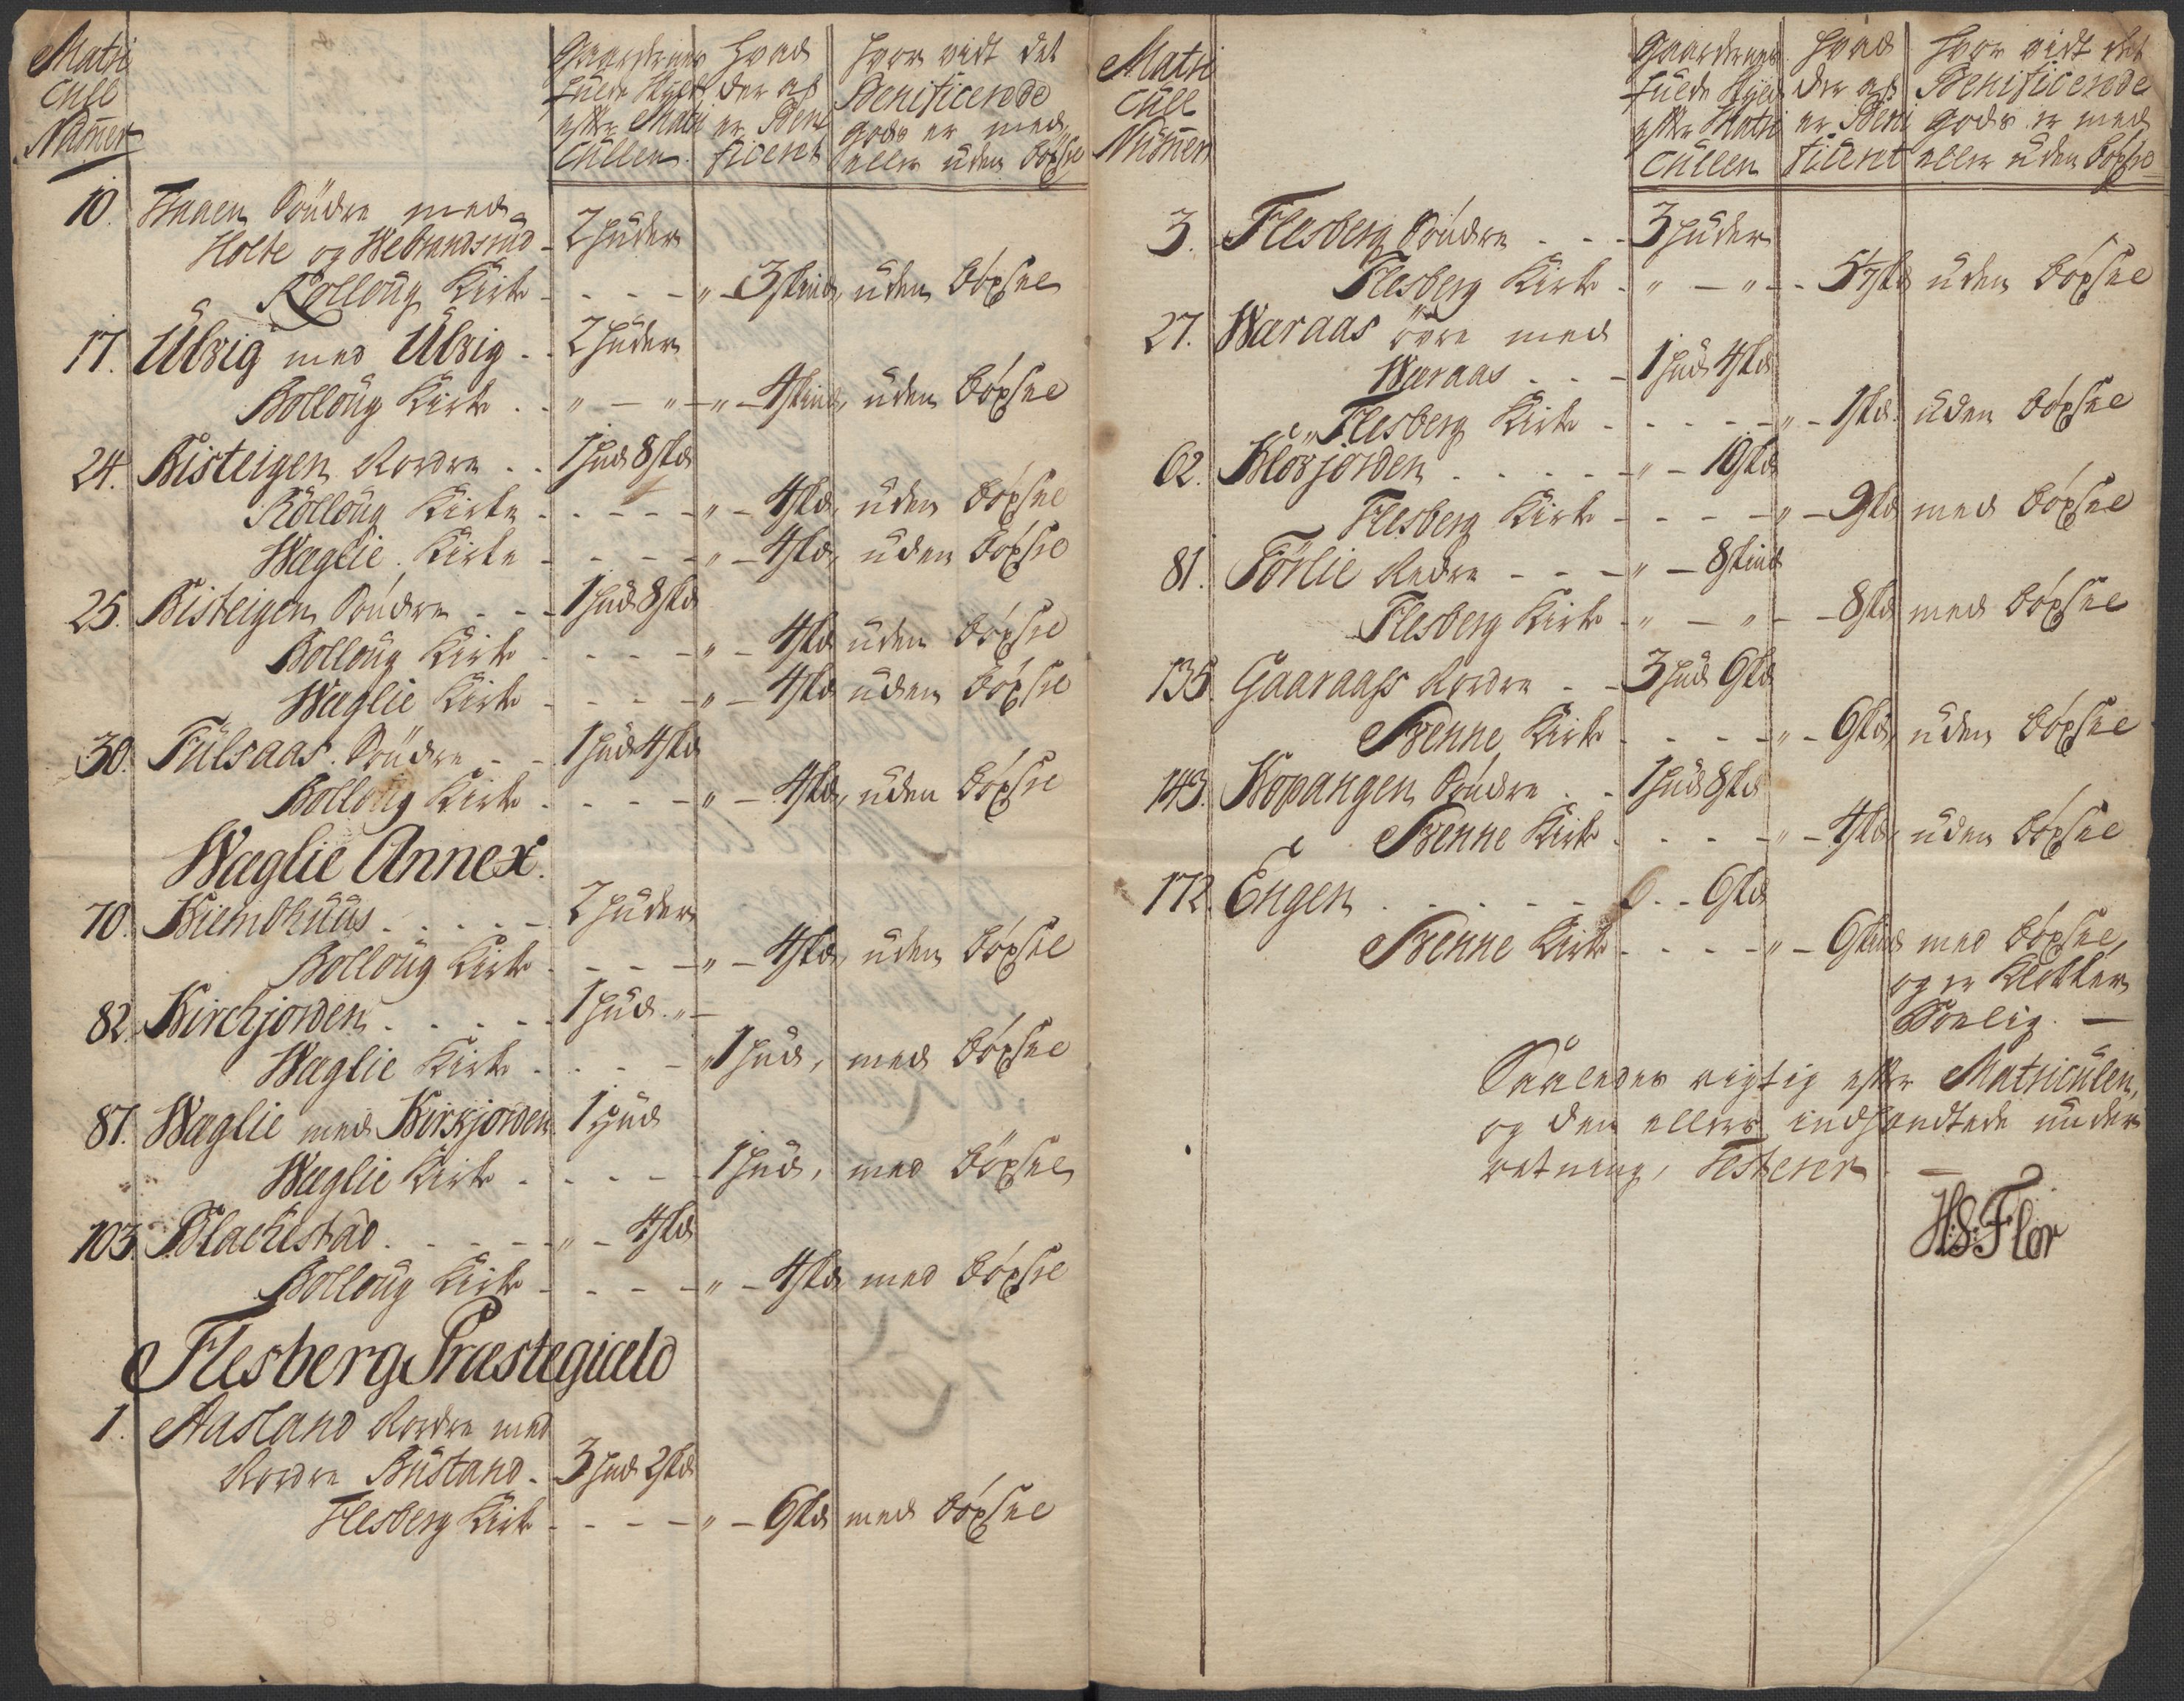 Matri
Cull
Nūmer
Gaardernes
fulde Skyld
efter Matri
Cullen.
Hvad
der af
er Beni
ficeret
Hvor vidt det
Benificerede
gods er med
eller uden Böxsel
10. Haaen Söndre med
Holte og Webrandsrud - 2 Huder
Rolloug Kirke - - - - " - 3 skind, uden Böxsel
17. Ulvig med Ulvig - - 2 Huder
Rolloug Kirke . . " - " - " - 4 skind, uden Böxsel
24. Bisteigen Nordre . . 1 Hud 8 skd
Rolloug Kirke - - - - " - 4 skd, uden Böxsel
Waglie Kirke - - - - " - 4 skd, uden Böxsel
25. Bisteigen Söndre - - - 1 Hud 8 skd
Rolloug Kirke - - - - " - 4 skd uden Böxsel
Waglie Kirke - - - - " - 4 skd uden Böxsel
30. Fulsaas Söndre - - 1 Hud 4 skd
Rolloug Kirke - - - - " - 4 skd, uden Böxsel
Waglie Annex.
70. Kiemshuus . . . . . 2 Huder
Rolloug Kirke - - - - " - 4 skd, uden Böxsel
82. Kirchjorden . . . . . 1 Hud. " -
Waglie Kirke - - - - " 1 Hud, med Böxsel
87. Waglie med Kirkjorden 1 Hud
Waglie Kirke - - - - - 1 Hud, med Böxsel
103. Blachestad . . . . . " - 4 skd
Rolloug Kirke - - - - " - 4 skd, med Böxsel
Flesberg Præstegield
1. Aasland Nordre med
Nordre Bustand - 3 Hud 2 skd
Flesberg Kirke - - - - " - 6 skd med Böxsel
Matri
Cull
Nūmer
Gaardernes
fulde Skyld
efter Matri
Cullen
Hvad
der af
er Beni
ficeret
Hvor vidt det
Benificerede
gods er med
eller uden Böxsel
3. Flesberg Söndre - - - 3 Huder
Flesberg Kirke - " - " - - 5 1/7 skd uden Böxsel
27. Waraas övre med
Waraas . . - 1 Hud 4 skd
Flesberg Kirke - - - - - " - 1 skd. uden Böxsel
62. Klovjorden . . . . . " - 10 skd
Flesberg Kirke - - - - " - 9 skd med Böxsel
81. Förlie Nedre - - - - " - 8 skind
Flesberg Kirke - " - " - - 8 skd med Böxsel
135. Gaaraass Nordre - - 3 Hud 6 skd
Svenne Kirke - - - - " - 6 skd, uden Böxsel
143. Kopangen Söndre . . 1 Hud 8 skd
Svenne Kirke . - - - " - 4 skd, uden Böxsel
172. Engen . . . . . . . 6 skd
Svenne Kirke - - - - " - 6 skind med Böxsel,
og er Klokker
Boelig. -
Saaledes rigtig efter Matriculen,
og den ellers indhændtede under
retning, Testerer
H:S: Flor